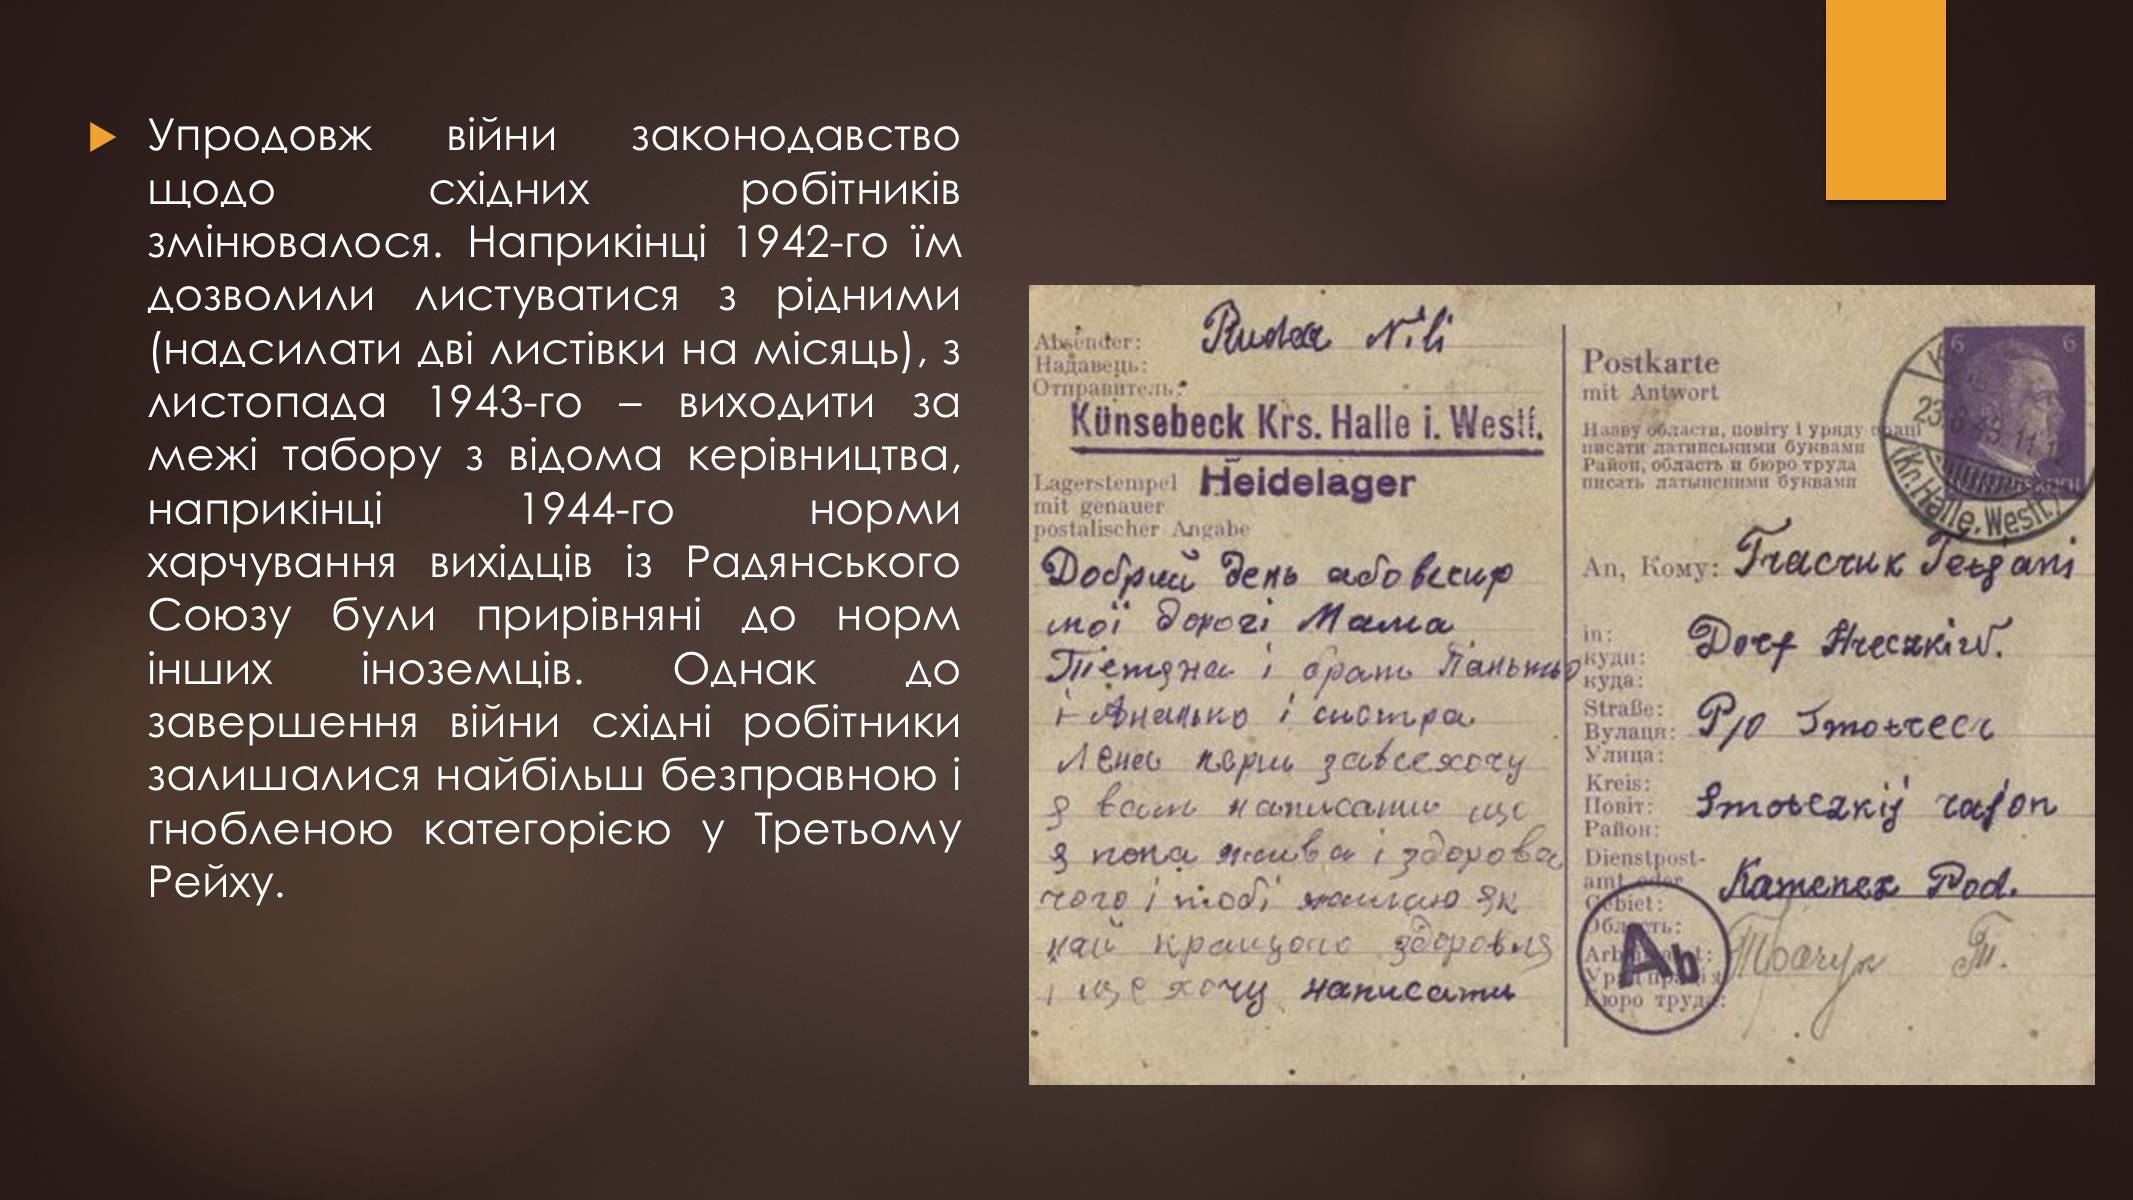 Упродовж війни законодавство
щодо східних робітників
змінювалося. Наприкінці 1942-го їм
дозволили листуватися з рідними
(надсилати дві листівки на місяць), з
листопада 1943-го – виходити за
межі табору з відома керівництва,
наприкінці 1944-го норми
харчування вихідців із Радянського
Союзу були прирівняні до норм
інших іноземців. Однак до
завершення війни східні робітники
залишалися найбільш безправною і
гнобленою категорією у Третьому
Рейху.
Absender:
Надавець:
Отправитель:
Ruda Nili
Künsebeck Krs. Halle i. Westf.
Lagerstempel
mit genauer
postalischer Angabe
Heidelager
Добрий день або вечир
мої дорогі Мама
Тетяна і брат Панько
і Ананько і систра
Лена перш завсе хочу
я вам написати що
я пока жива і здорова
чого і тобі жилаю як
най кращого здоровля
і ще хочу написати
Postkarte
mit Antwort
Назву области, повіту і уряду праці
писати латинськими буквами
Район, область и бюро труда
писать латынскими буквами
6 6
(Kr. Halle, Westf.)
An, Кому:
in:
куди:
куда:
Dorf
Straße:
Вулаця:
Улица:
P/o
Kreis:
Повіт:
Район:
rajon
Dienstpost-
amt oder
Gebiet:
Область:
Kamenez Pod.
Ab
Бюро труда:
Т.